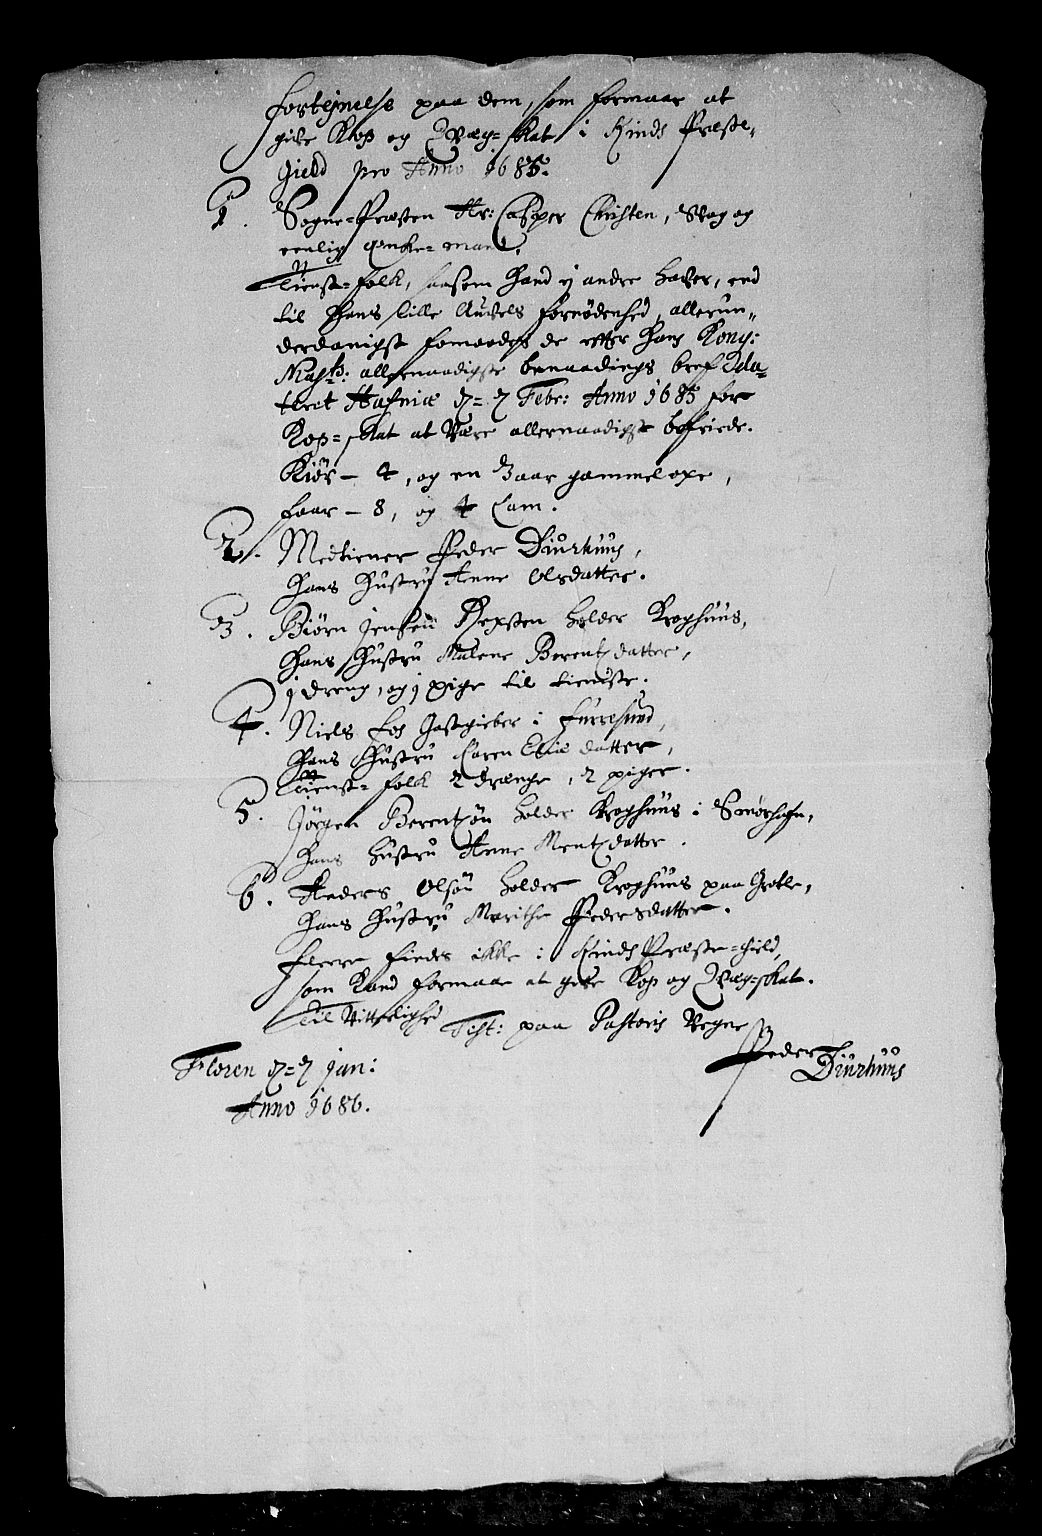 Fortejnelse paa dem, som formaar at
give Kop og Qvæg=skat i Kinds Præste-
gield pro Anno 1685.
1. Sogne=Præsten Hr: Casper Christen, svag og
eenlig Enke=mand.
Tienst=folk, saasom hand ej andre haver, end
til hans lille Auvels fornødenhed, allerun-
derdanigst formoedes de efter Hans Kong:
Mayts: allernaadigste benaadings bref Da-
teret Hafniæ d= 7 Febr: Anno 1685 for
Kop=skat at være allernaadigst befriede.
Kiør - 4, og en Baar gammel oxe,
faar - 8, og 4 Lam.
2. Medtiener Peder Diurhuus,
Hans Hustru Anne Olsdatter.
3. Biørn Jensen Hepsøen holder Kroghuus,
Hans Hustru Malene Berentzdatter,
j dreng, og j pige til tieniste.
4. Niels Fos Gastgieber i Furresund,
Hans Hustru Karen Elie datter,
Tienst=folk 2 drænge, 2 piger.
5. Jørgen Berentzøn holder Kroghuus i Smørhafn,
Hans Hustru Anne Mentzdatter.
6. Anders Olsøn holder Kroghuus paa Grotle,
Hans Hustru Marithe Pedersdatter.
Fleere findes ikke i Kinds Præste=gield,
som Kand formaar at give Kop og Qvæg=skat.
Til Vitterlighed
Test: paa Pastoris Vegne
Peder Diurhuus
Floren d= 7 Jan:
Anno 1686.